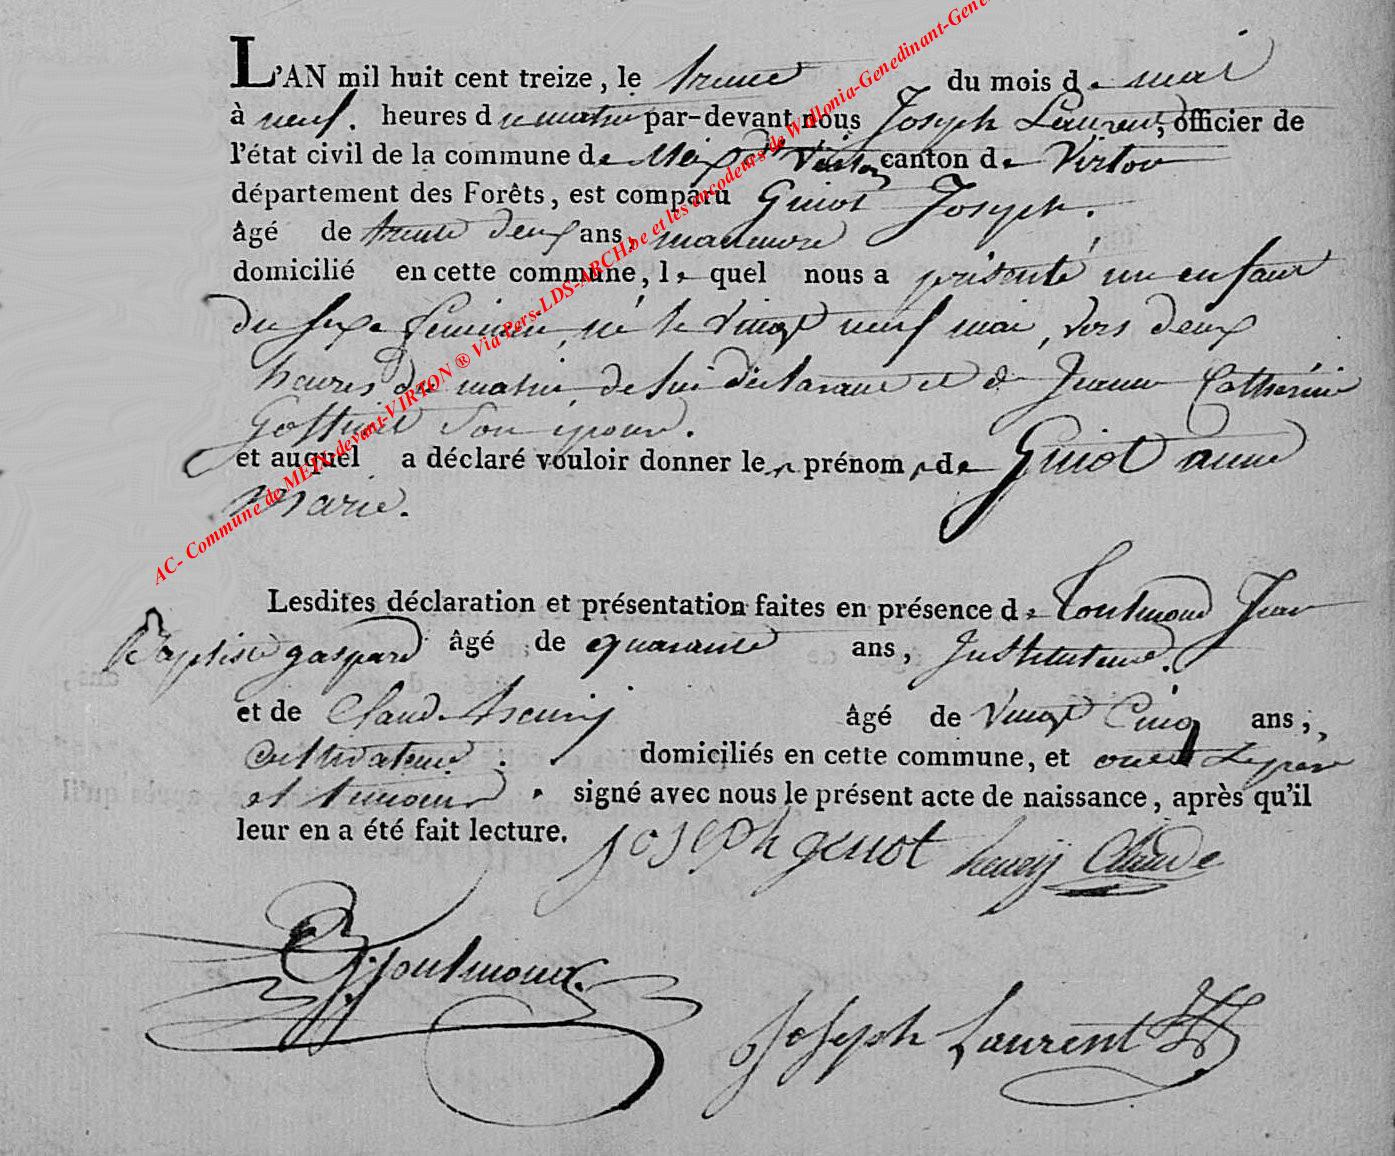 L'AN mil huit cent treize, le trente du mois de mai
à neuf. heures du matin par-devant nous Joseph Laurent, officier de
l'état civil de la commune de Meix dt Virton canton de Virton
département des Forêts, est comparu Guiot Joseph.
âgé de trente deux ans, manœuvre
domicilié en cette commune, lequel nous a présenté un enfant
du sexe feminin, né le vingt neuf mai, vers deux
heures du matin, de lui déclarant et de Jeanne Catherine
son épouse.
et auquel a déclaré vouloir donner les prénoms de Guiot anne
marie.
Lesdites déclaration et présentation faites en présence de Toutmond Jean
Baptiste gaspard âgé de quarante ans, Instituteur.
et de Claude henrij âgé de vingt Cinq ans,
cultivateur. domiciliés en cette commune, et ont Le pere
et temoins signé avec nous le présent acte de naissance, après qu'il
leur en a été fait lecture. Joseph guiot henrij Claude
Joseph Laurent
AC- Commune de MEIX-devant-VIRTON ® Via Pers-LDS-ARCH.be et les encodeurs de Wallonia-Genedinant-Gene